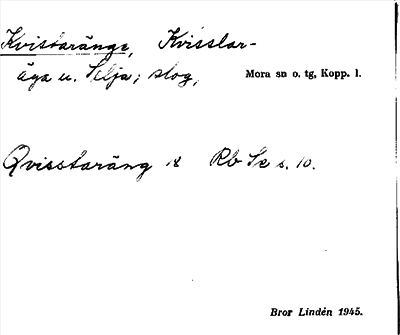 Kvistaränge, Kvisslar-
äga u. Selja; slog, Mora sn o. tg, Kopp. l.
Qvisstaräng 18 Rb Se s. 10.
Bror Lindén 1945.